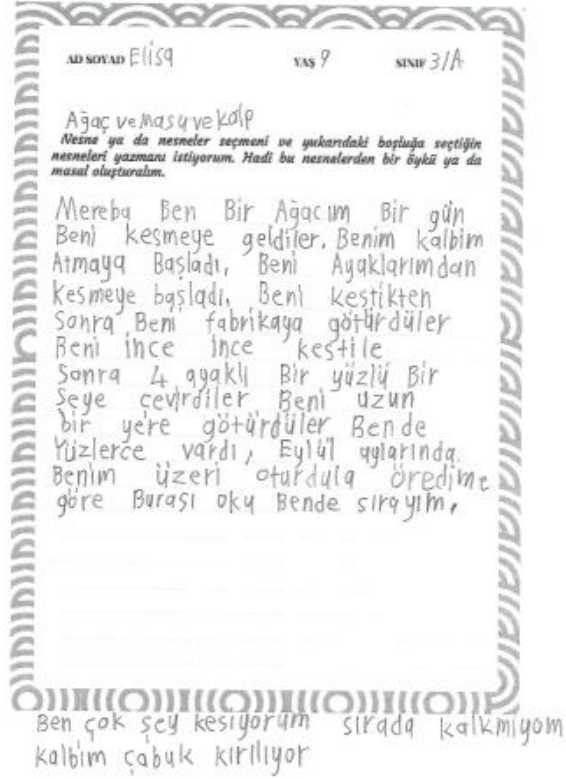 AD SOYAD Elisa YAŞ 9 SINIF 3/A
Ağaç ve Masa ve kalp
Nesne ya da nesneler seçmeni ve yukarıdaki boşluğa seçtiğin
nesneleri yazmanı istiyorum. Hadi bu nesnelerden bir öykü ya da
masal oluşturalım.
Mereba Ben Bir Ağacım Bir gün
Beni kesmeye geldiler. Benim kalbim
Atmaya Başladı, Beni Ayaklarımdan
Kesmeye başladı, Beni kestikten
Sonra Beni fabrikaya götürdüler
Beni ince ince kestile
Sonra 4 ayaklı Bir yüzlü Bir
Şeye çevirdiler Beni uzun
bir yere götürdüler Bende
Yüzlerce vardı, Eylül aylarında
Benim üzeri oturdula öredime
göre Burası oku Bende sırayım,
Ben çok şey kesiyorum sırada kalkmıyom
Kalbim çabuk kırılıyor